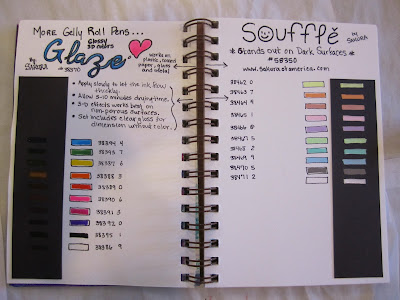 More Gelly Roll Pens...
Glossy
3D colors
Glaze
by SAKURA
#38370
works on
plastic, coated
paper, glass
and metal
• Apply slowly to let the ink flow
thickly.
• Allow 5-10 minutes drying time.
• 3-D effects works best on
non-porous surfaces.
• Set includes clear gloss for
dimension without color.
38394 4
38395 7
38387 6
38388 3
38389 0
38390 6
38391 3
38392 0
38385 1
38386 9
Soufflé
by SAKURA
* Stands out on Dark Surfaces *
#58350
www.Sakuraofamerica.com
38462 0
38463 7
38464 4
38465 1
38466 8
38467 5
38468 2
38469 9
38470 5
38471 2